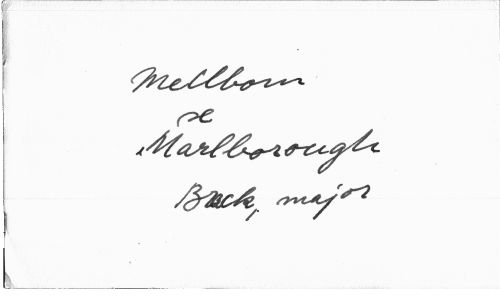 Mellborn
se
Marlborough
Back, major